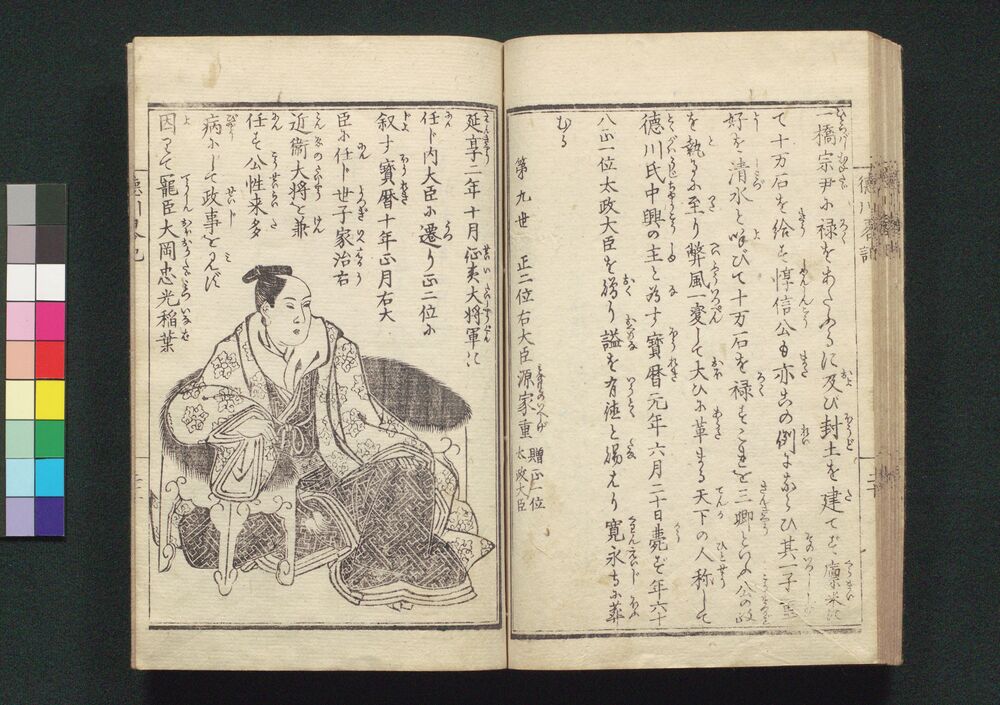 一橋宗尹に禄をあたふるに及び封土を建てず廩米
て十万石を給す惇信公も亦この例にならひ其一子重
好を清水と呼びて十万石を禄すこれを三卿といふ公の政
を執るに至り弊風一変して大ひに革まる天下の人称して
徳川氏中興の主と為す寳暦元年六月二十日薨ず年六十
八正一位太政大臣を贈り謚を有徳と賜はり寛永寺に葬
むる
第九世 正二位右大臣源家重 贈正一位太政大臣
延享二年十月征夷大将軍に
任じ内大臣に遷り正二位に
叙す寳暦十年正月右大
臣に任じ世子家治右
近衛大将を兼
任す公性来多
病にして政事を見ず
因って寵臣大岡忠光稲葉